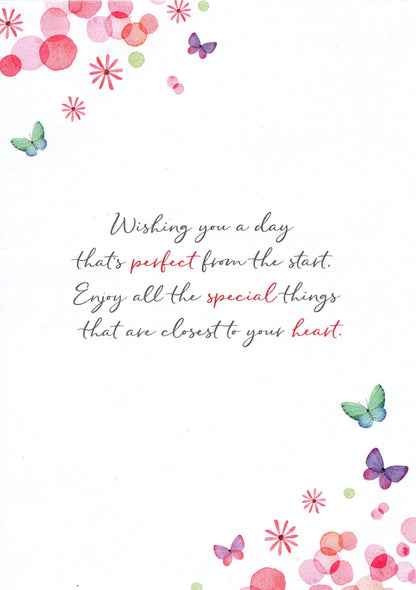 Wishing you a day
that's perfect from the start.
Enjoy all the special things
that are closest to your heart.